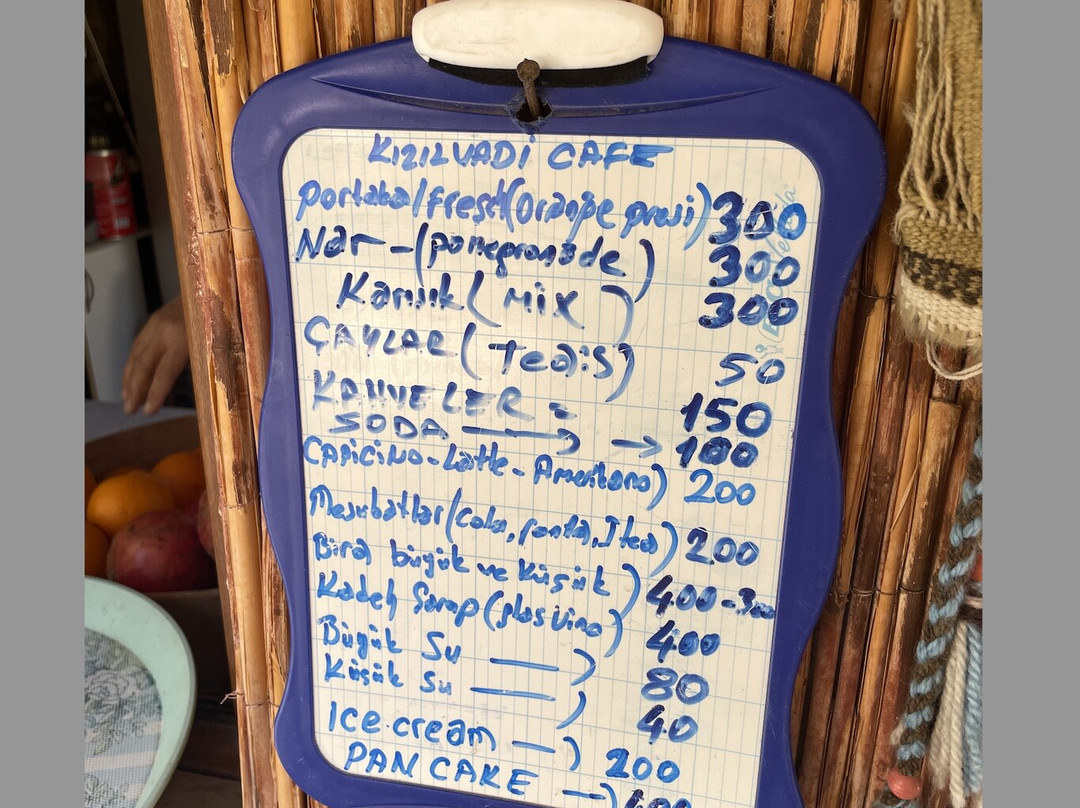 KIZILVADİ CAFE
Portakal/fresh(oranje prusi) 300
Nar-(pomegronade) 300
Karışık (Mix) 300
ÇAYLAR (Teais) 50
KAHVELER = 150
SODA → → 100
CAPICINO-Latte-Amerikano) 200
Meşubatlar(cola,fanta,Itea) 200
Bira büyük ve küçük) 400-300
Kadeh Şarap (glas vino) 400
Büyük Su —) 80
Küçük Su —) 40
Ice.cream —) 200
PANCAKE →)